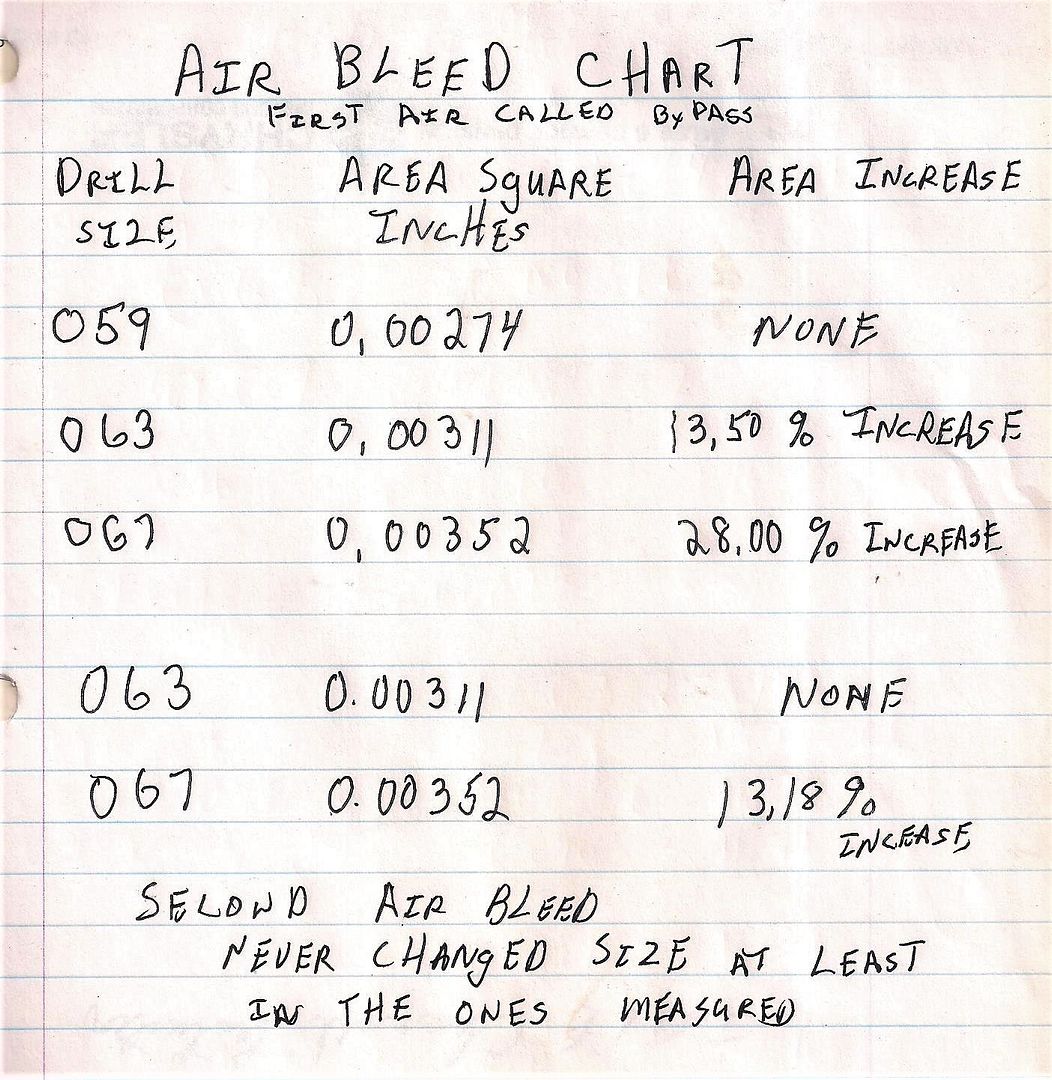 AIR BLEED CHART
FIRST AIR CALLED By PASS
DRILL AREA SQUARE AREA INCREASE
SIZE INCHES
059 0,00274 NONE
063 0,00311 13,50 % INCREASE
067 0,00352 28.00 % INCREASE
063 0.00311 NONE
067 0.00352 13,18 %
INCEASE
SECOND AIR BLEED
NEVER CHANGED SIZE AT LEAST
IN THE ONES MEASURED